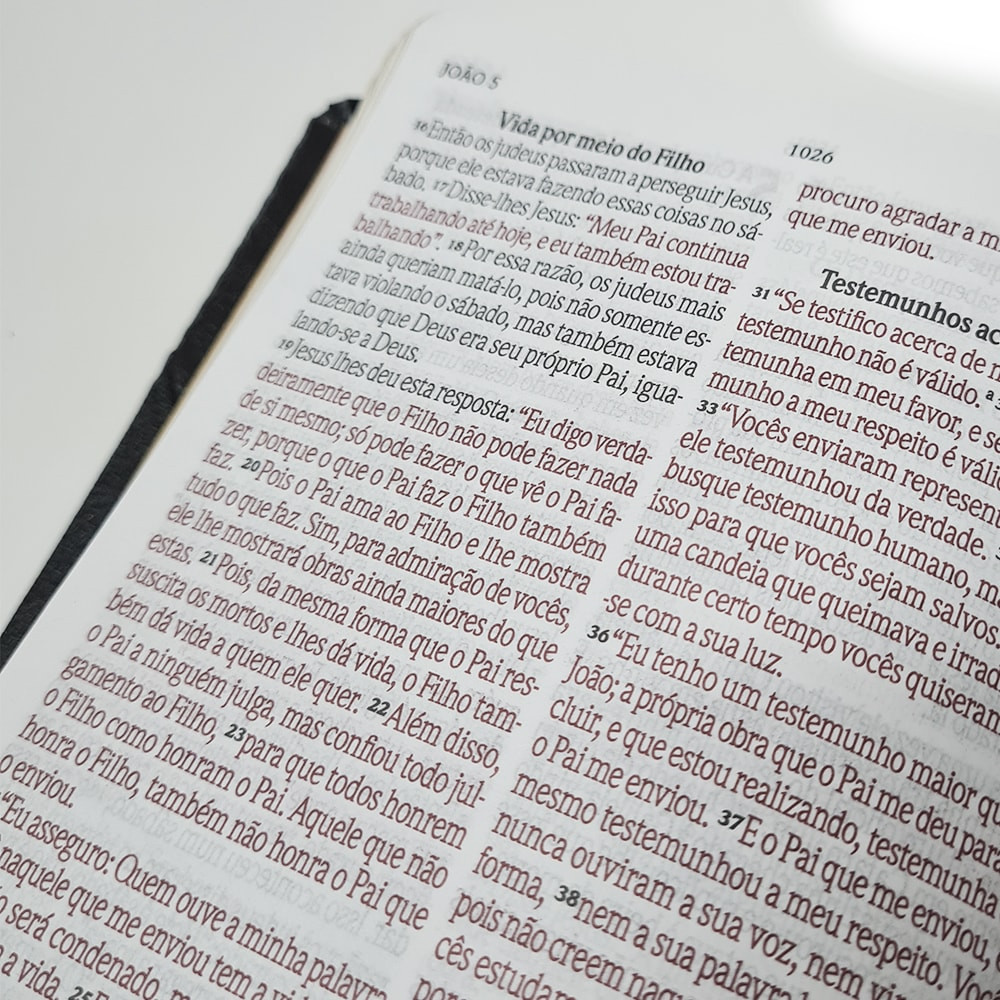 JOÃO 5
Vida por meio do Filho
16Então os judeus passaram a perseguir Jesus,
porque ele estava fazendo essas coisas no sá-
bado. 17Disse-lhes Jesus: “Meu Pai continua
trabalhando até hoje, e eu também estou tra-
balhando”. 18Por essa razão, os judeus mais
ainda queriam matá-lo, pois não somente es-
tava violando o sábado, mas também estava
dizendo que Deus era seu próprio Pai, igua-
lando-se a Deus.
19Jesus lhes deu esta resposta: “Eu digo verda-
deiramente que o Filho não pode fazer nada
de si mesmo; só pode fazer o que vê o Pai fa-
zer, porque o que o Pai faz o Filho também
faz. 20Pois o Pai ama ao Filho e lhe mostra
tudo o que faz. Sim, para admiração de vocês,
ele lhe mostrará obras ainda maiores do que
estas. 21Pois, da mesma forma que o Pai res-
suscita os mortos e lhes dá vida, o Filho tam-
bém dá vida a quem ele quer. 22Além disso,
o Pai a ninguém julga, mas confiou todo jul-
gamento ao Filho, 23para que todos honrem
o Filho como honram o Pai. Aquele que não
honra o Filho, também não honra o Pai que
o enviou.
“Eu asseguro: Quem ouve a minha palavra
naquele que me enviou tem a
será condenado,
a vida. 25
1026
procuro agradar a
que me enviou.
Testemunhos
31“Se testifico acerca de
testemunho não é válido.
temunha em meu favor, e
munho a meu respeito é
33“Vocês enviaram
ele testemunhou da verdade.
busque testemunho humano,
isso para que vocês sejam salvos
uma candeia que queimava e
durante certo tempo vocês quiseram
-se com a sua luz.
36“Eu tenho um testemunho maior
João; a própria obra que o Pai me deu para
cluir, e que estou realizando, testemunha
o Pai me enviou. 37E o Pai que me enviou,
mesmo testemunhou a meu respeito.
nunca ouviram a sua voz, nem
forma, 38nem a sua palavra
pois não creem
cês